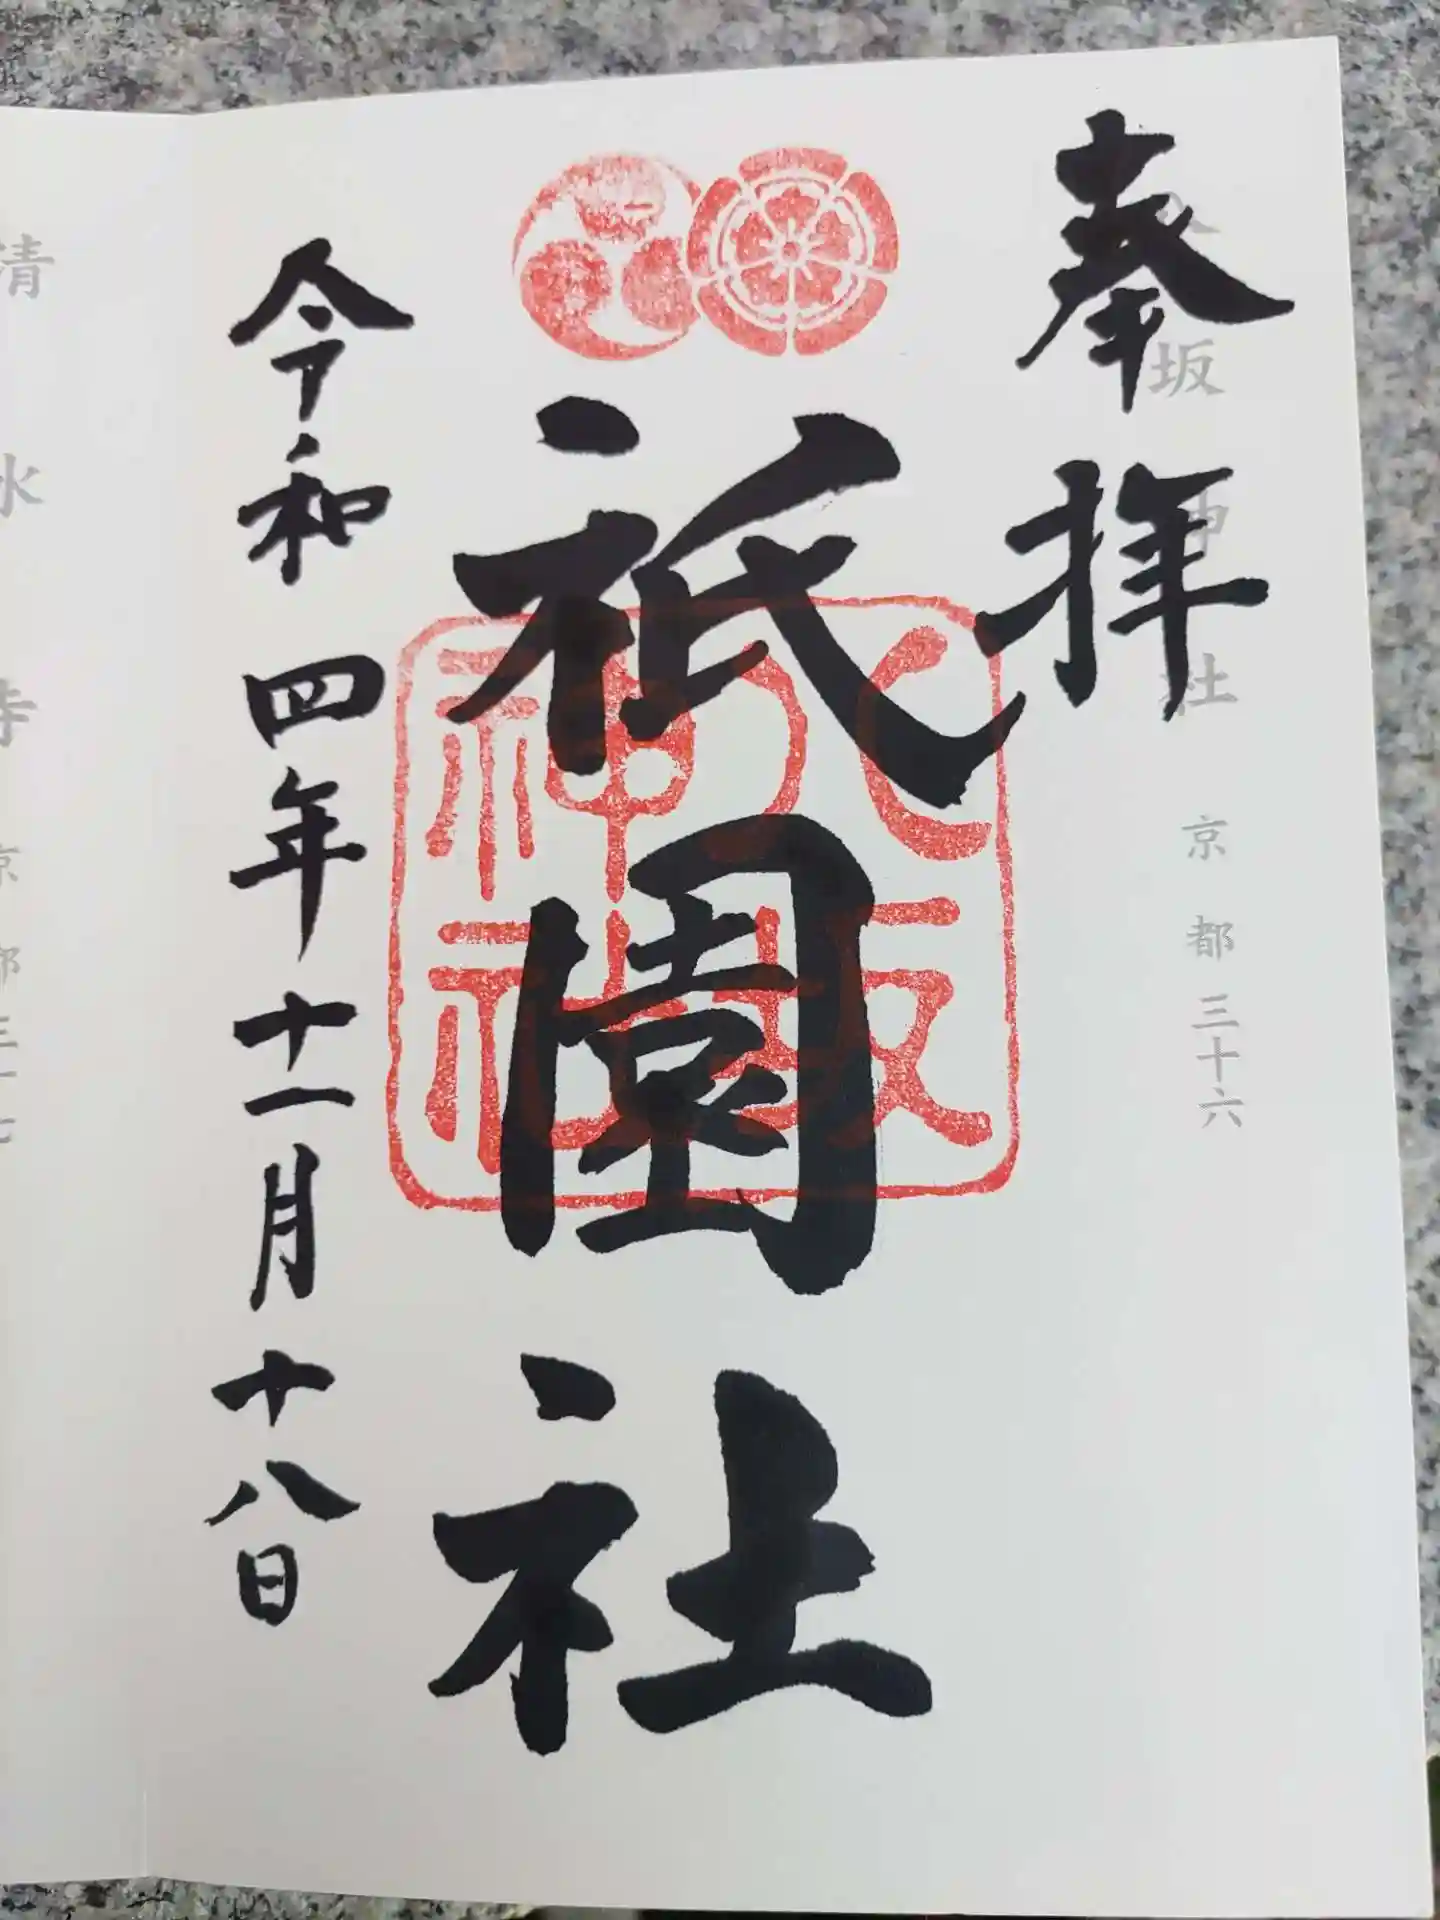 奉拝
八坂神社 京都三十六
祇園社
八坂神社
令和四年十一月十八日
清水寺 京都三十七